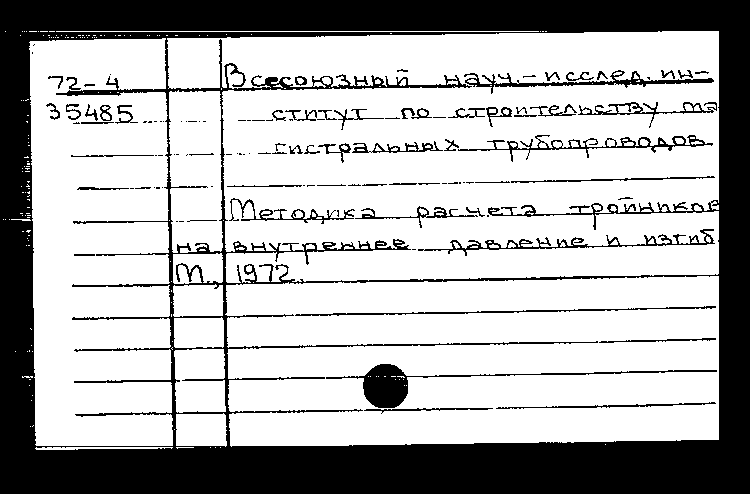 72-4 Всесоюзный науч.-исслед. ин-
35485 ститут по строительству ма
гистральных трубопроводов
Методика расчета тройников
на внутреннее давление и изгиб
М., 1972.